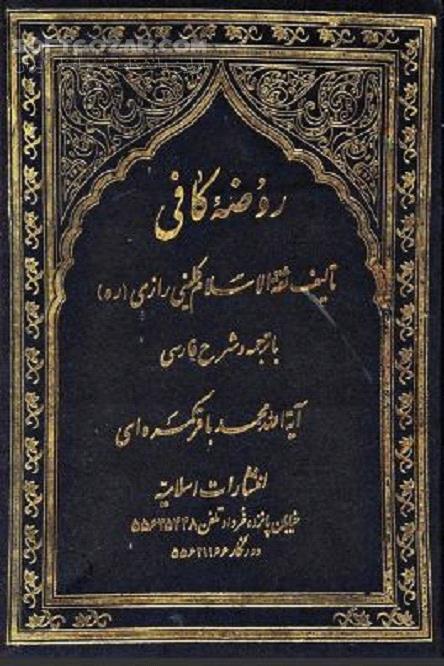 SOFTGOZAR.COM
روضهٔ کافی
تألیف ثقة الاسلام کلینی رازی (ره)
با ترجمه و شرح فارسی
آیة الله محمد باقر کمره‌ای
انتشارات اسلامیه
خیابان پانزده خرداد تلفن ۵۵۶۲۵۴۴۸
دورنگار ۵۵۶۲۱۱۶۶